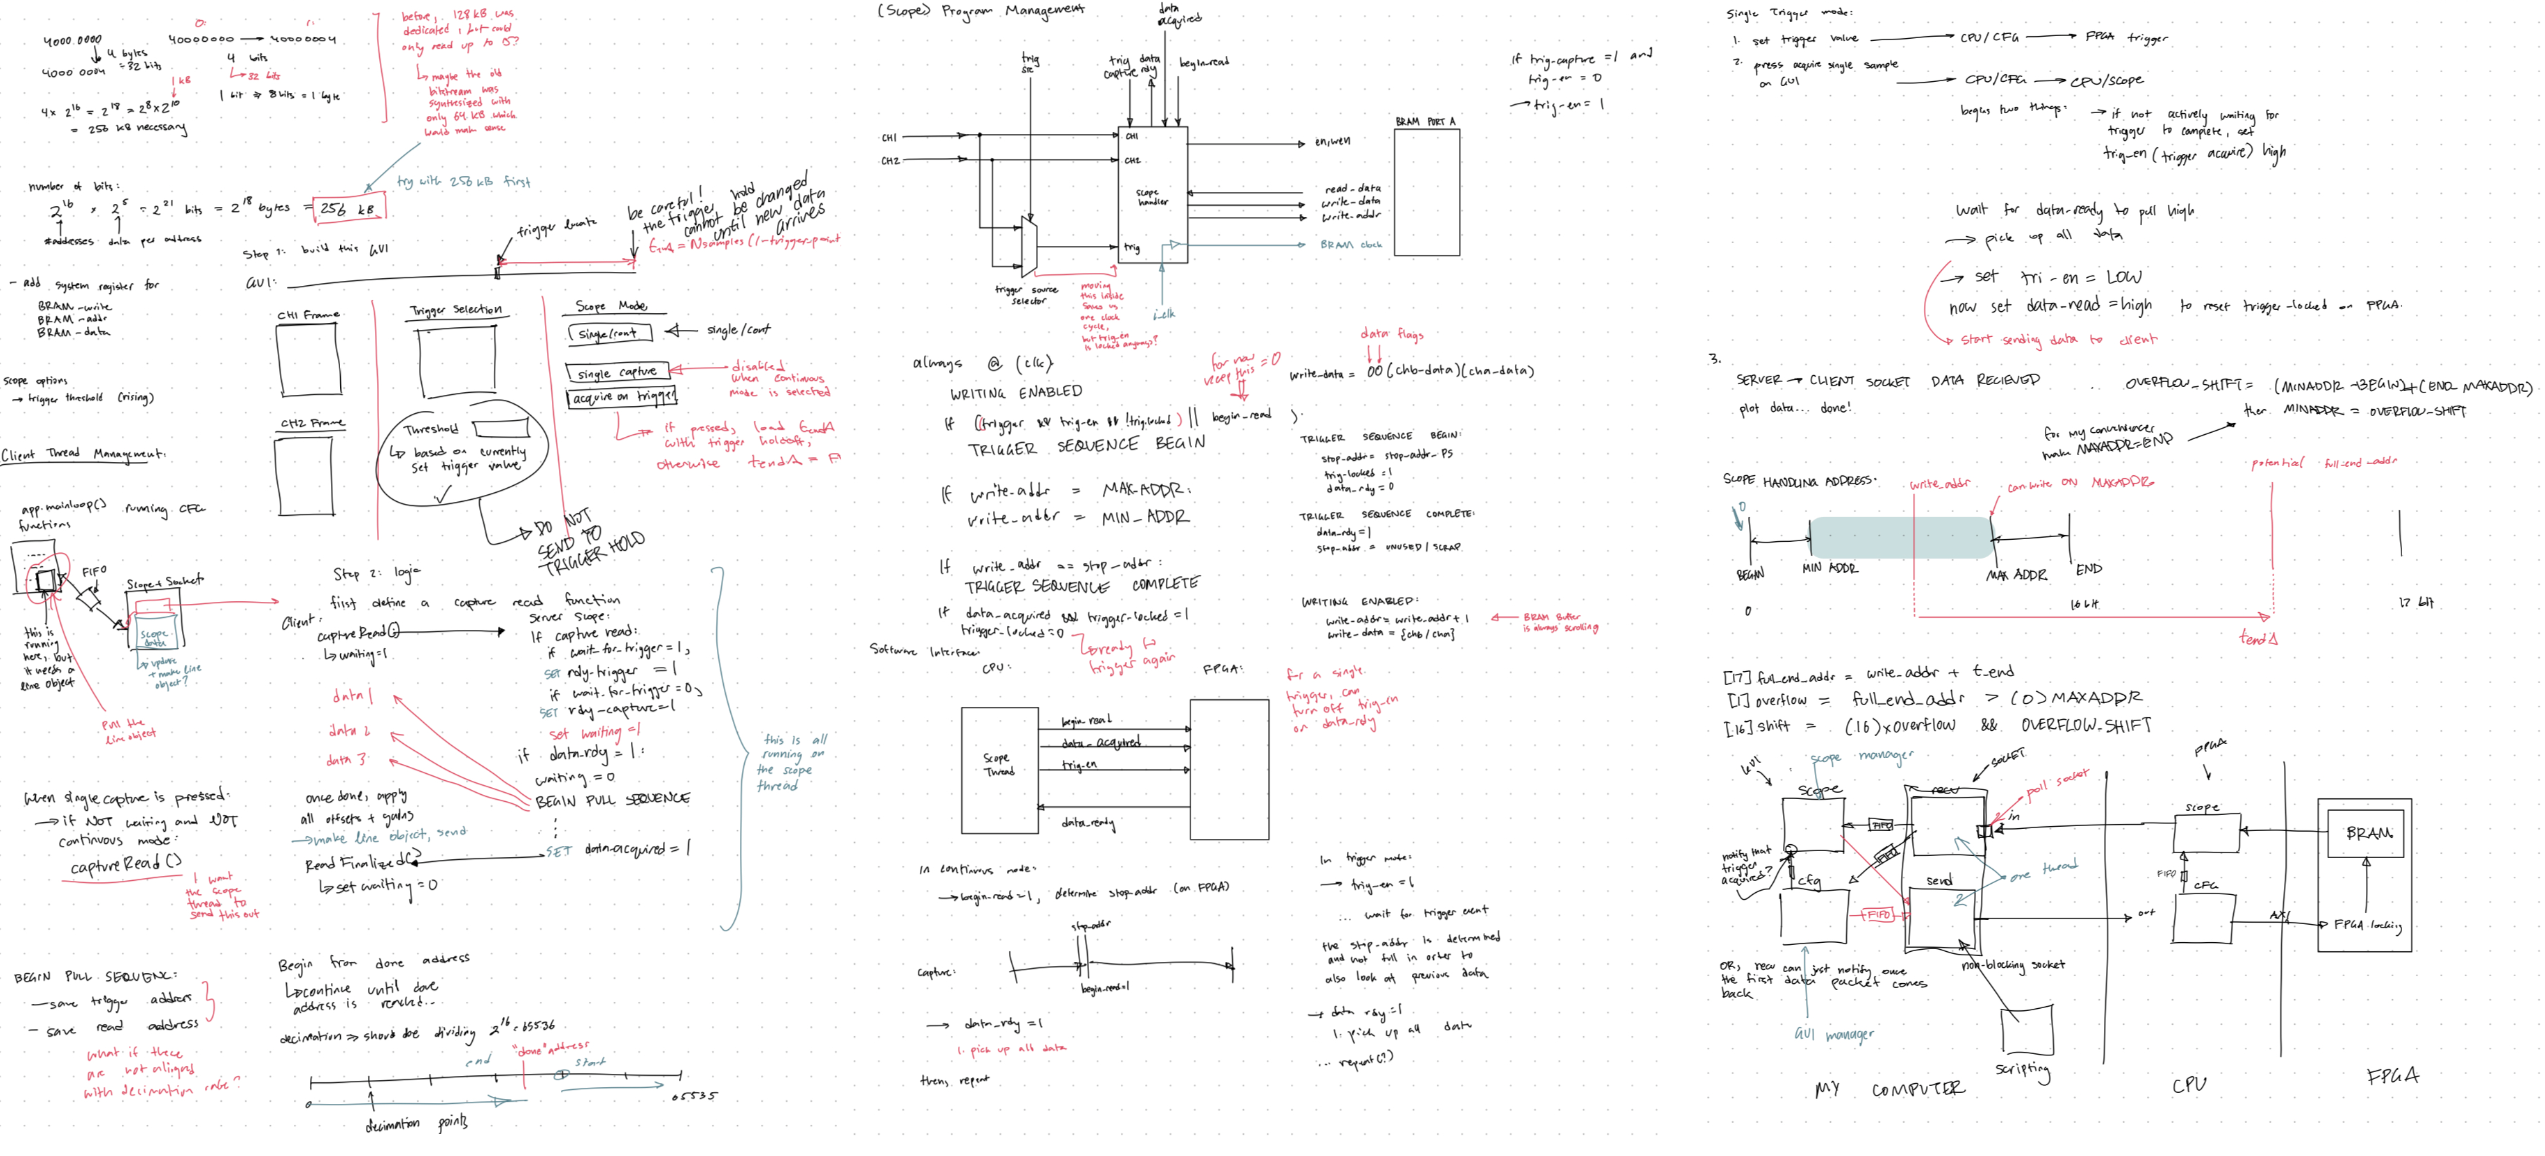 4000.0000
4 bytes
= 32 bits
4000 0004
0:
1:
40000000 → 40000004
4 bits
↳ 32 bits
1 bit ⇒ 8 bits = 1 byte
1 kB
4 x 2^16 = 2^18 = 2^8 x 2^10
= 256 kB necessary
before, 128 kB was
dedicated, but could
only read up to
↳ maybe the old
bitstream was
synthesized with
only 64 kB which
would make sense
try with 256 kB first
number of bits:
2^16 x 2^5 = 2^21 bits = 2^18 bytes = 256 kB
#addresses data per address
- add system register for
BRAM-write
BRAM-addr
BRAM-data
scope options
→ trigger threshold (rising)
Step 1: build this GUI
GUI:
trigger locate
be careful!
the trigger hold
cannot be changed
until new data
arrives
= Nsamples (1-trigger_point
CH1 Frame
CH2 Frame
Trigger Selection
Threshold
↳ based on currently
set trigger value
✓
→ DO NOT
SEND TO
TRIGGER HOLD
Scope Mode
single/cont
← single/cont
single capture
acquire on trigger
disabled
when continuous
mode is selected
if pressed, load tendΔ
with trigger holdoff,
otherwise tendΔ =
Client Thread Management:
app.mainloop() running CFG
functions
FIFO
Scope + Socket
scope
data
↳ update
+ make line
object?
this is
running
here, but
it needs a
line object
pull the
line object
Step 2: logic
first define a capture read function
Client:
captureRead()
↳ waiting=1
Server Scope:
if capture read:
if wait-for-trigger = 1,
SET rdy-trigger = 1
if wait-for-trigger = 0,
SET rdy-capture = 1
set waiting = 1
if data-rdy = 1:
waiting = 0
BEGIN PULL SEQUENCE
SET data-acquired = 1
data 1
data 2
data 3
once done, apply
all offsets + gains
→ make line object, send
ReadFinalized()
↳ set waiting = 0
this is all
running on
the scope
thread
When single capture is pressed:
→ if NOT waiting and NOT
continuous mode:
captureRead()
I want
the scope
thread to
send this out
BEGIN PULL SEQUENCE:
- save trigger address
- save read address
what if these
are not aligned
with decimation rate?
Begin from done address
↳ continue until done
address is reached...
decimation ⇒ should be dividing 2^16 = 65536
end
"done" address
start
0
65535
decimation points
(Scope) Program Management
trig
src
trig
capture
data
rdy
data
acquired
begin_read
CH1
CH2
CH1
CH2
scope
handler
trig
trigger source
selector
moving
this inside
saves us
one clock
cycle,
but trig-en
is locked anyways?
en,wen
read-data
write-data
write-addr
BRAM clock
BRAM PORT A
if trig-capture = 1 and
trig-en = 0
→ trig-en = 1
always @ (clk)
WRITING ENABLED
if ((trigger && trig-en && !trig.locked) || begin_read ).
TRIGGER SEQUENCE BEGIN
for now
keep this = 0
data flags
write-data = 00 (chb-data)(cha-data)
If write-addr = MAX-ADDR:
write-addr = MIN_ADDR
If write_addr == stop-addr:
TRIGGER SEQUENCE COMPLETE
If data_acquired && trigger-locked = 1
trigger-locked = 0
↳ ready to
trigger again
TRIGGER SEQUENCE BEGIN:
stop-addr = stop-addr-PS
trig-locked = 1
data_rdy = 0
TRIGGER SEQUENCE COMPLETE:
data-rdy = 1
stop-addr = UNUSED / SCRAP
WRITING ENABLED:
write-addr = write_addr + 1
write-data = {chb/cha}
BRAM Buffer
is always scrolling
Software Interface
CPU:
FPGA:
Scope
Thread
begin_read
data_acquired
trig-en
data_ready
for a single
trigger, can
turn off trig-en
on data_rdy
In continuous mode:
→ begin_read = 1, determine stop-addr (on FPGA)
stop_addr
capture:
begin_read=1
→ data_rdy = 1
1. pick up all data
then, repeat
In trigger mode:
→ trig-en = 1
... wait for trigger event
the stop-addr is determined
and not full in order to
also look at previous data
→ data rdy = 1
1. pick up all data
... repeat(?)
Single Trigger mode:
1. set trigger value → CPU/CFG → FPGA trigger
2. press acquire single sample
on GUI → CPU/CFG → CPU/SCOPE
begins two things: → if not actively waiting for
trigger to complete, set
trig-en (trigger acquire) high
wait for data-ready to pull high
→ pick up all data
→ set tri-en = LOW
now set data-read = high to reset trigger-locked on FPGA.
→ start sending data to client
3.
SERVER → CLIENT SOCKET DATA RECIEVED
plot data... done!
OVERFLOW_SHIFT = (MINADDR - BEGIN) + (END - MAXADDR)
then MINADDR = OVERFLOW-SHIFT
for my convenience
make MAXADDR = END
SCOPE HANDLING ADDRESS:
write_addr
can write ON MAXADDR
potential full_end_addr
0
BEGIN
MIN ADDR
MAX ADDR
END
0
16 bit
17 bit
tendΔ
[17] full_end_addr = write_addr + t_end
[1] overflow = full_end_addr > (0)MAXADDR
[16] shift = (16)xoverflow && OVERFLOW_SHIFT
GUI
scope manager
SOCKET
poll socket
FPGA
scope
recv
in
scope
BRAM
FIFO
FIFO
notify that
trigger
acquired?
cfg
send
2
one thread
FIFO
out
FIFO
CFG
AXI
FPGA locking
OR, recv can just notify once
the first data packet comes
back
non-blocking socket
GUI manager
scripting
MY COMPUTER
CPU
FPGA